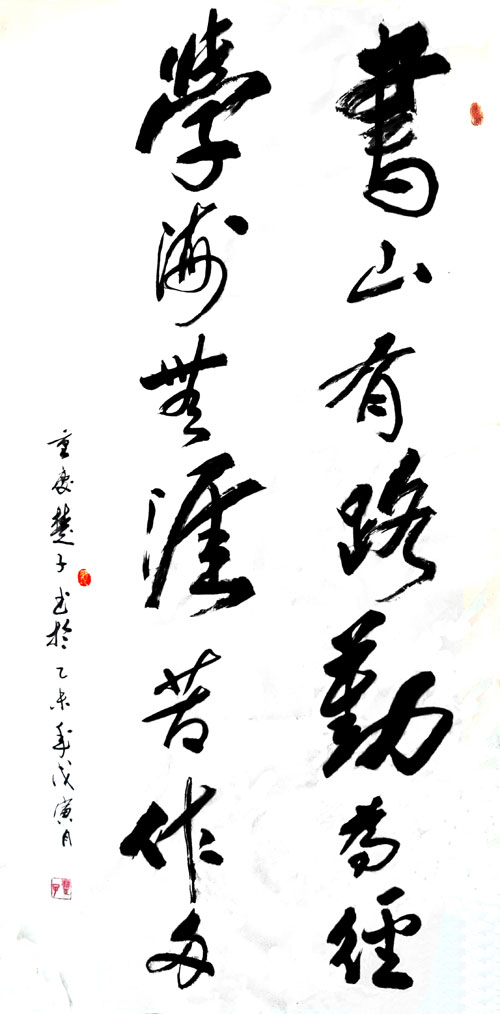 書山有路勤為徑
學海無涯苦作舟
重慶楚子书於乙未年戊寅月